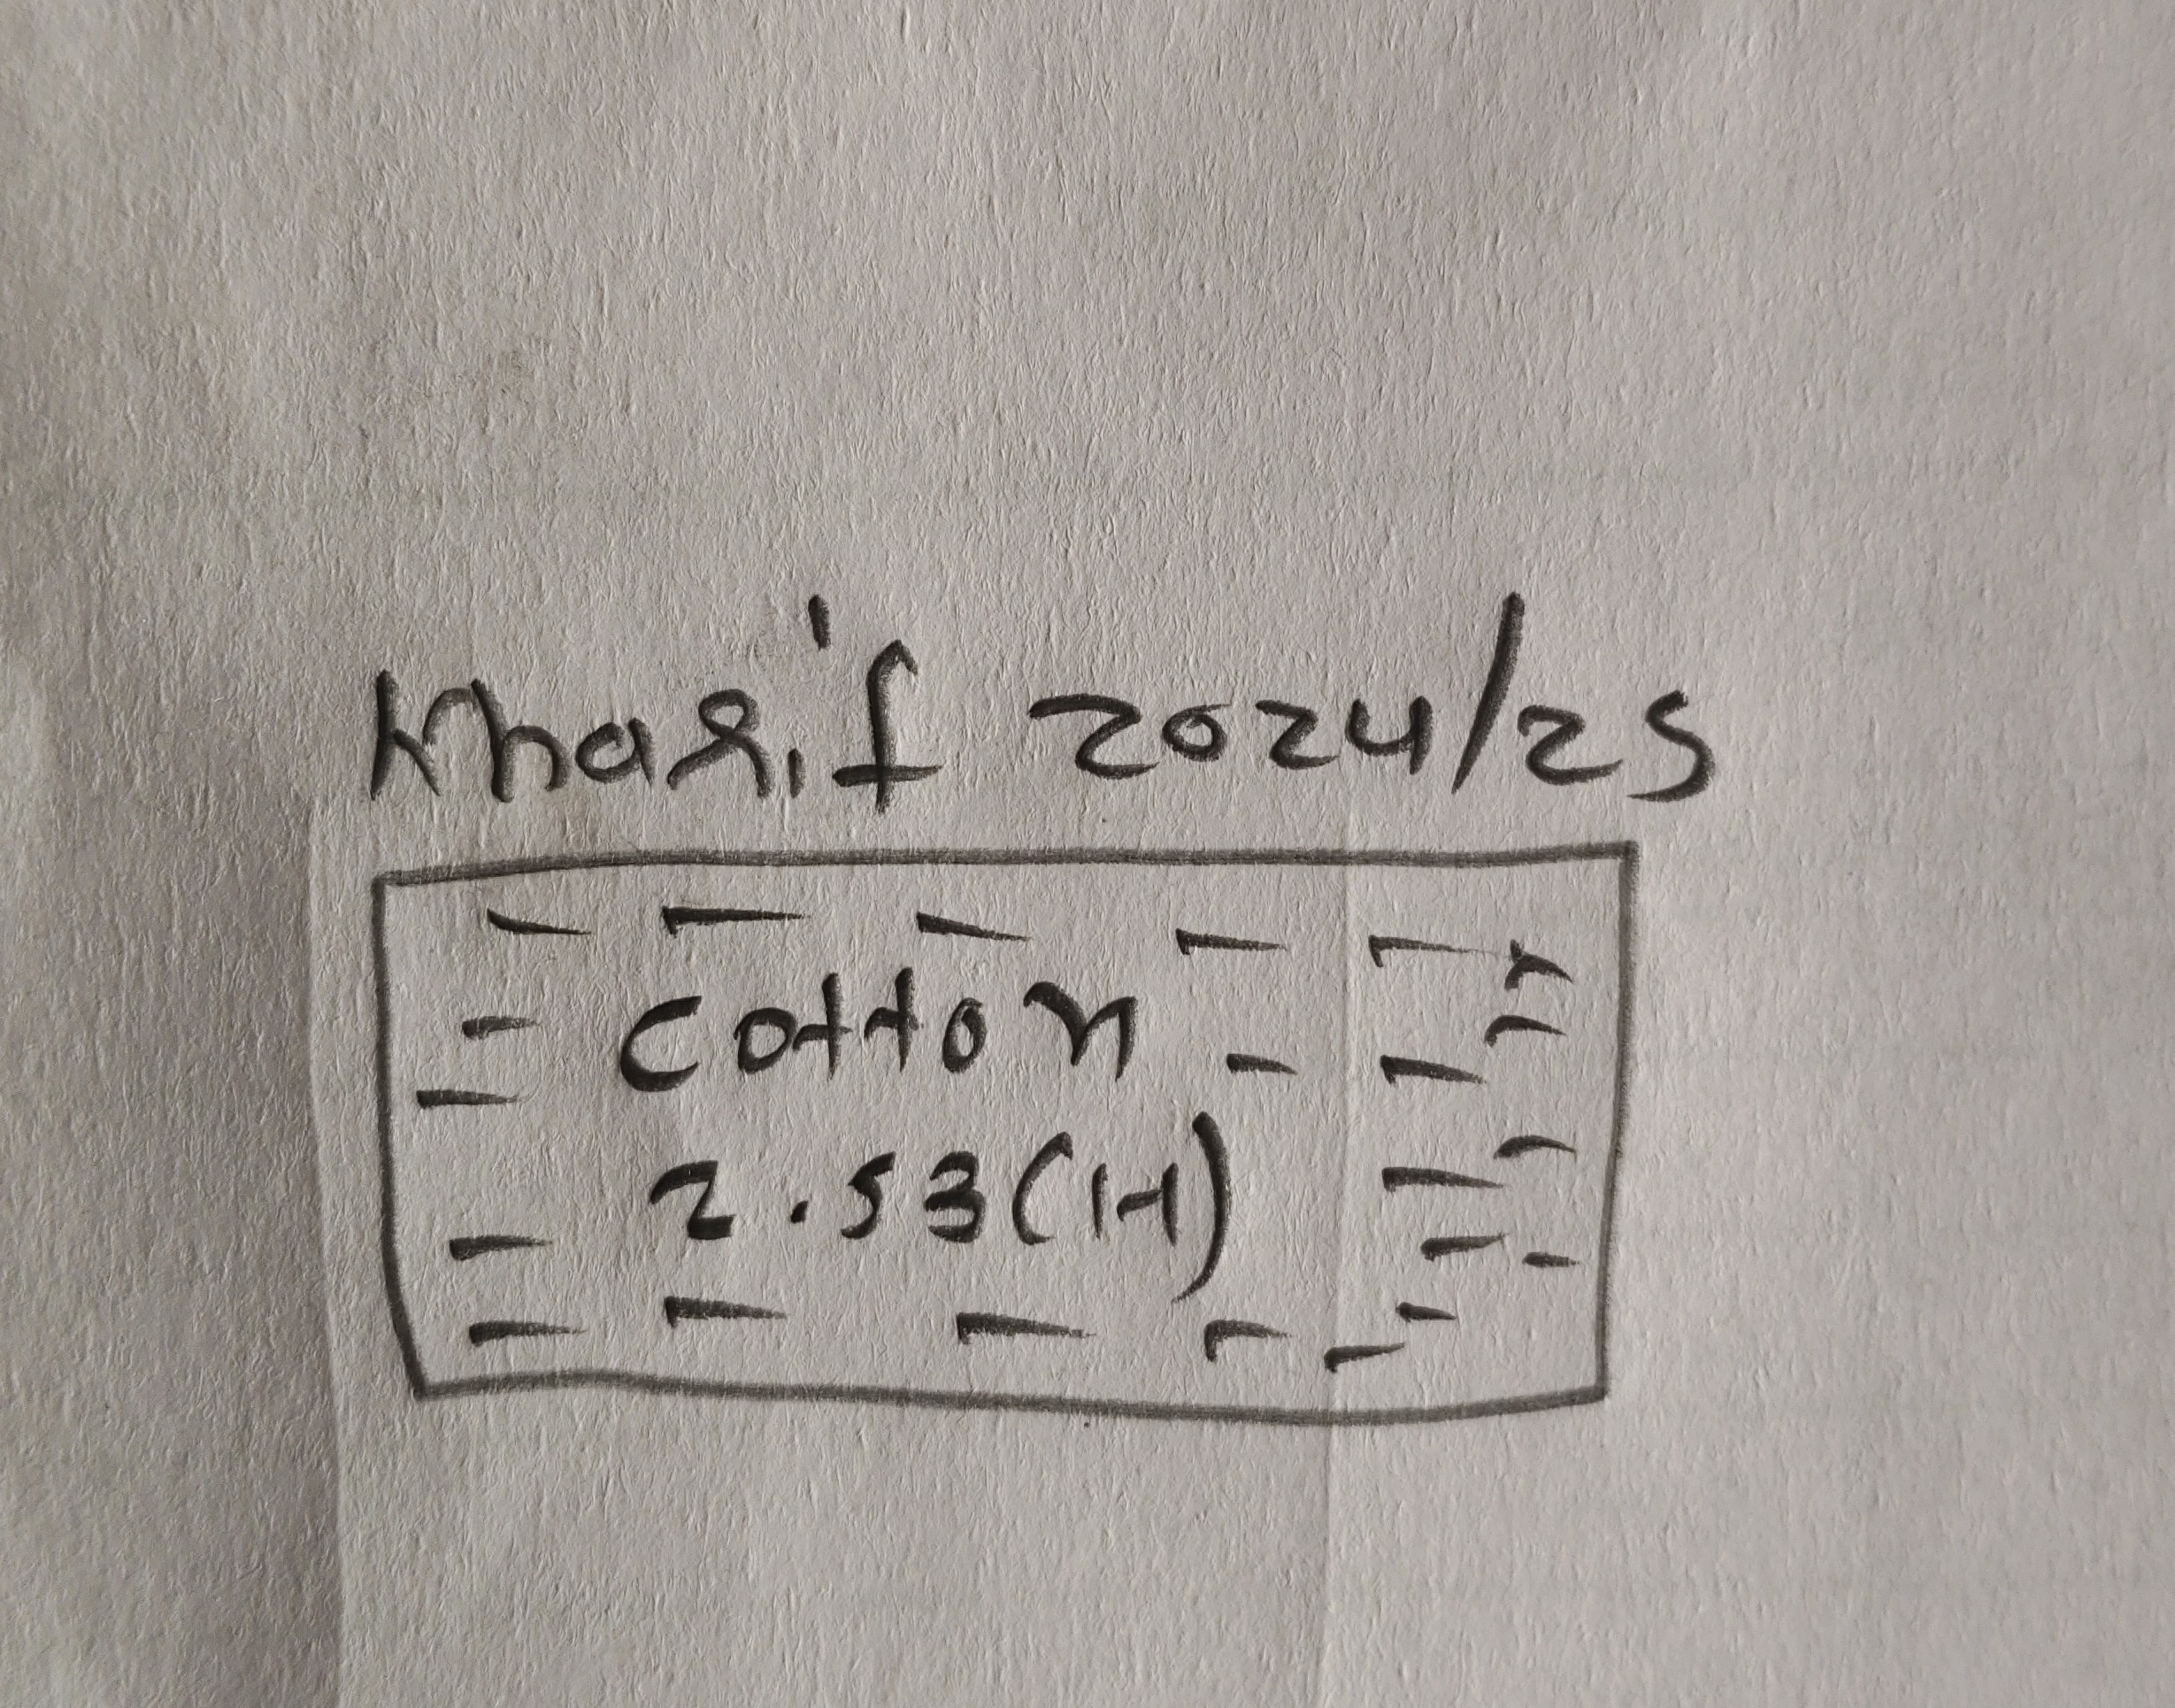 Kharif 2024/25
Cotton
2.53(H)